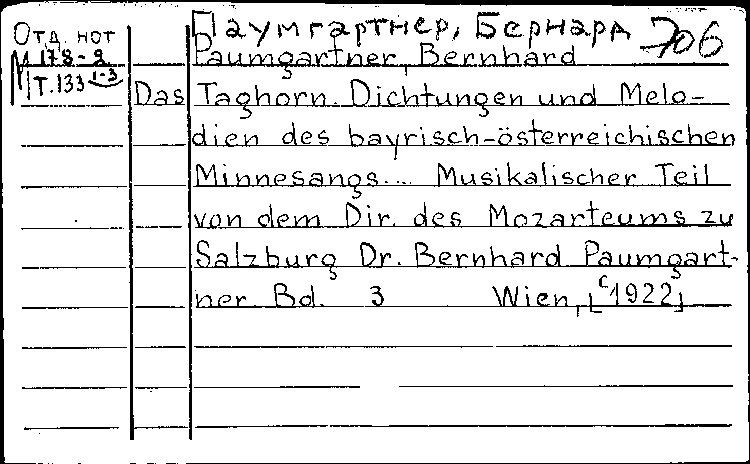 Отд. нот
М 178-2
Т.133 1-3
Паумгартнер, Бернард 706
Paumgartner, Bernhard
Das Taghorn. Dichtungen und Melo-
dien des bayrisch-österreichischen
Minnesangs... Musikalischer Teil
von dem Dir. des Mozarteums zu
Salzburg Dr. Bernhard Paumgart-
ner. Bd. 3 Wien, [c1922]